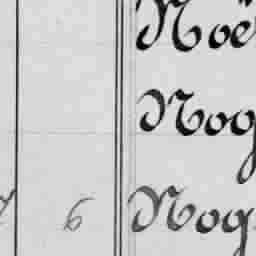 Noë
Nog
6 Nog